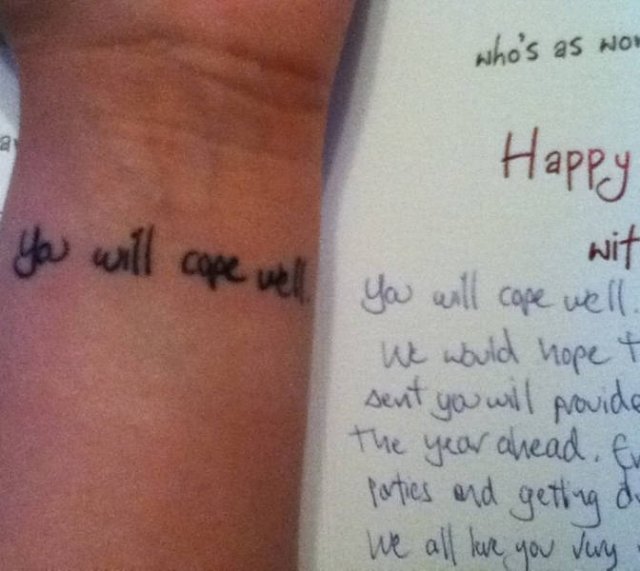 You will cope well.
who's as wo
Happy
wit
You will cope well.
We would hope t
sent you will provide
the year ahead. Ev
parties and getting d
We all love you very